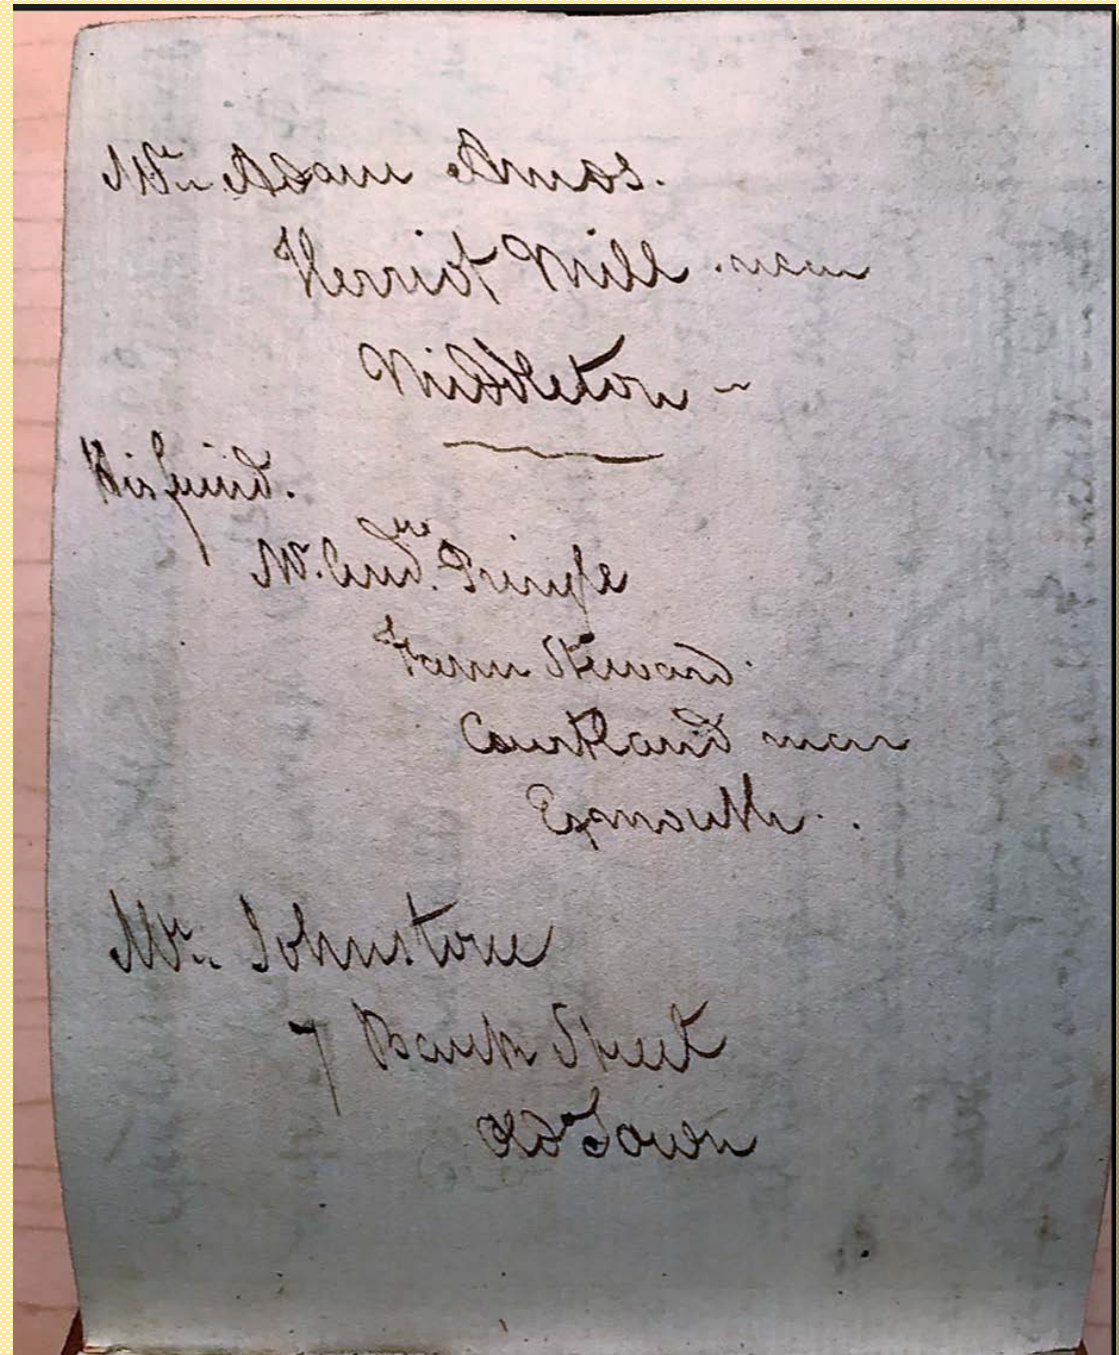 Mr. Adam Amos.
Herriot Mill near
Middleton -
His friend.
Mr. Andre. Pringle
Farm Steward.
Courtland near
Exmouth.
Mr. Johnstone
7 Bank Street
Old Town